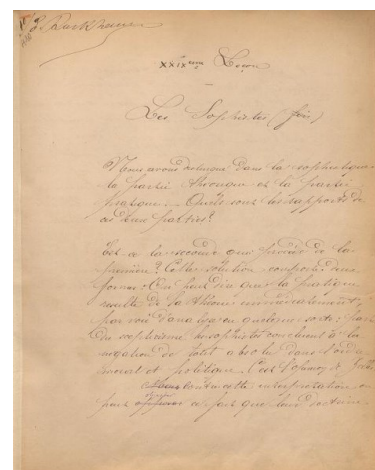 XXIXème Leçon
Les Sophistes (fin)
Nous avons distingué dans la sophistique
la partie théorique et la partie
pratique. Quels sont les rapports de
ces deux parties?
Est-ce la seconde qui procède de la
première? Cette solution comporte deux
formes: On peut dire que la pratique
résulte de la théorie immédiatement,
par voie d'analyse en quelque sorte: par
du les sophistes concluent à la
négation de tout absolu dans l'ordre
moral et politique. C'est l'opinion de
contre cette interprétation
peut ce fait que leur doctrine